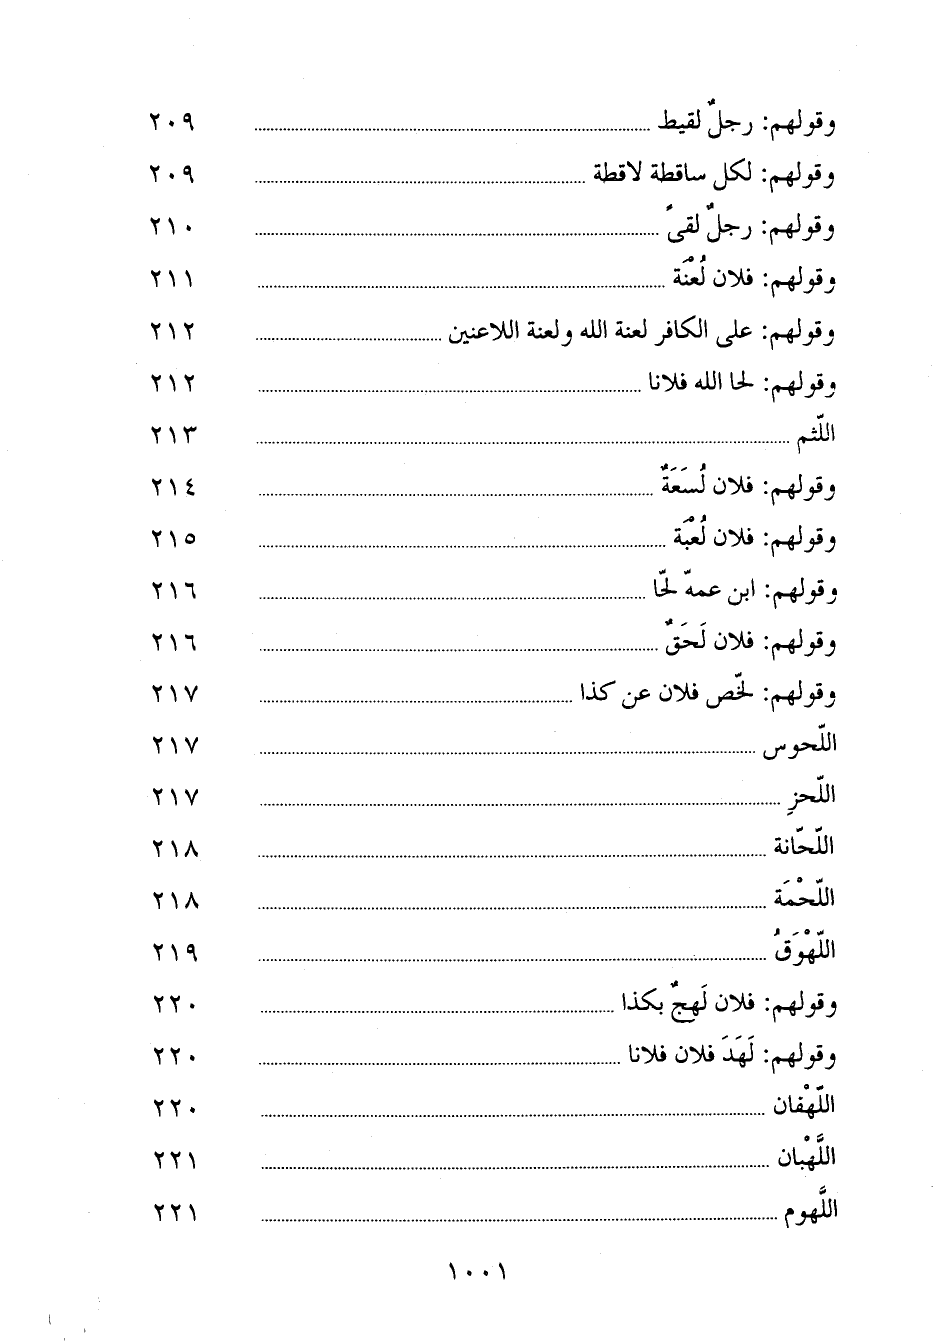 وقولهم: رجلٌ لقيط ........ ٢٠٩
وقولهم: لكل ساقطة لاقطة ........ ٢٠٩
وقولهم: رجلٌ لقىً ........ ٢١٠
وقولهم: فلان لُعْنَة ........ ٢١١
وقولهم: على الكافر لعنة الله ولعنة اللاعنين ........ ٢١٢
وقولهم: لحا الله فلانا ........ ٢١٢
اللّثم ........ ٢١٣
وقولهم: فلان لُسَعَةٌ ........ ٢١٤
وقولهم: فلان لُعْبَة ........ ٢١٥
وقولهم: ابن عمهّ لحّا ........ ٢١٦
وقولهم: فلان لَحَقٌ ........ ٢١٦
وقولهم: لخّص فلان عن كذا ........ ٢١٧
اللّحوس ........ ٢١٧
اللّحزِ ........ ٢١٧
اللّحّانة ........ ٢١٨
اللّحْمَة ........ ٢١٨
اللّهْوَقُ ........ ٢١٩
وقولهم: فلان لَهجٌ بكذا ........ ٢٢٠
وقولهم: لَهَدَ فلان فلانا ........ ٢٢٠
اللّهْفان ........ ٢٢٠
اللَّهْبان ........ ٢٢١
اللَّهوم ........ ٢٢١
١٠٠١